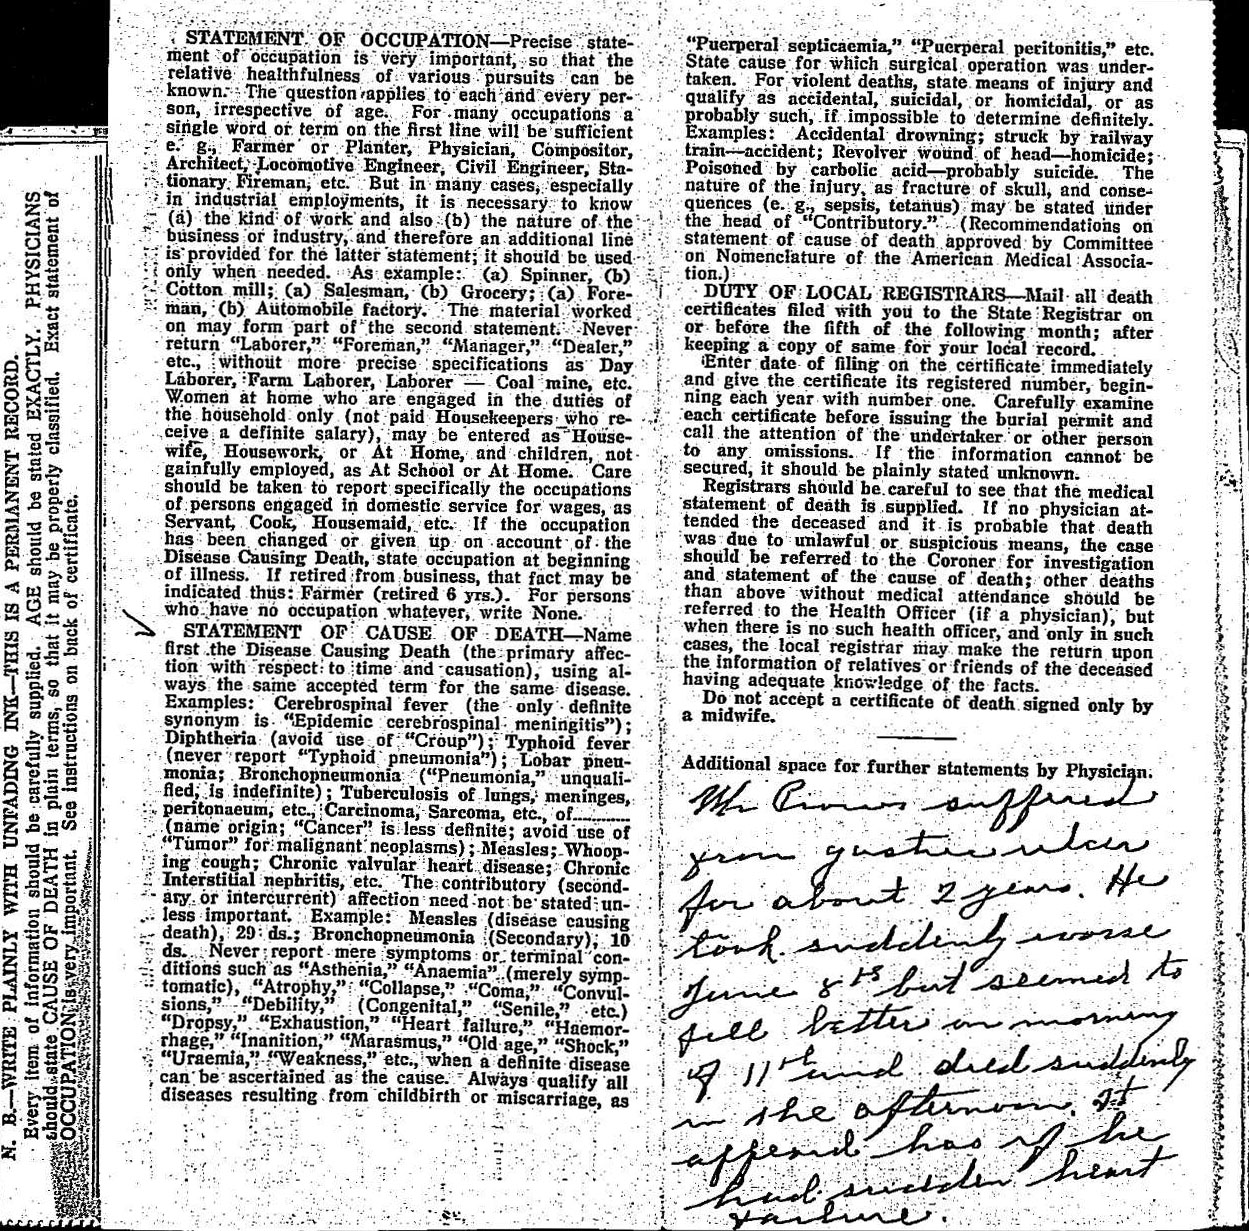 N. B.—WRITE PLAINLY WITH UNFADING INK—THIS IS A PERMANENT RECORD.
Every item of information should be carefully supplied. AGE should be stated EXACTLY. PHYSICIANS
should state CAUSE OF DEATH in plain terms, so that it may be properly classified. Exact statement of
OCCUPATION is very important. See instructions on back of certificate.
STATEMENT OF OCCUPATION—Precise state-
ment of occupation is very important, so that the
relative healthfulness of various pursuits can be
known. The question applies to each and every per-
son, irrespective of age. For many occupations a
single word or term on the first line will be sufficient
e. g., Farmer or Planter, Physician, Compositor,
Architect, Locomotive Engineer, Civil Engineer, Sta-
tionary Fireman, etc. But in many cases, especially
in industrial employments, it is necessary to know
(a) the kind of work and also (b) the nature of the
business or industry, and therefore an additional line
is provided for the latter statement; it should be used
only when needed. As example: (a) Spinner, (b)
Cotton mill; (a) Salesman, (b) Grocery; (a) Fore-
man, (b) Automobile factory. The material worked
on may form part of the second statement. Never
return "Laborer," "Foreman," "Manager," "Dealer,"
etc., without more precise specifications as Day
Laborer, Farm Laborer, Laborer — Coal mine, etc.
Women at home who are engaged in the duties of
the household only (not paid Housekeepers who re-
ceive a definite salary), may be entered as House-
wife, Housework, or At Home, and children, not
gainfully employed, as At School or At Home. Care
should be taken to report specifically the occupations
of persons engaged in domestic service for wages, as
Servant, Cook, Housemaid, etc. If the occupation
has been changed or given up on account of the
Disease Causing Death, state occupation at beginning
of illness. If retired from business, that fact may be
indicated thus: Farmer (retired 6 yrs.). For persons
who have no occupation whatever, write None.
STATEMENT OF CAUSE OF DEATH—Name
first the Disease Causing Death (the primary affec-
tion with respect to time and causation), using al-
ways the same accepted term for the same disease.
Examples: Cerebrospinal fever (the only definite
synonym is "Epidemic cerebrospinal meningitis");
Diphtheria (avoid use of "Croup"); Typhoid fever
(never report "Typhoid pneumonia"); Lobar pneu-
monia; Bronchopneumonia ("Pneumonia," unquali-
fied, is indefinite); Tuberculosis of lungs, meninges,
peritonaeum, etc., Carcinoma, Sarcoma, etc., of............
(name origin; "Cancer" is less definite; avoid use of
"Tumor" for malignant neoplasms); Measles; Whoop-
ing cough; Chronic valvular heart disease; Chronic
Interstitial nephritis, etc. The contributory (second-
ary or intercurrent) affection need not be stated un-
less important. Example: Measles (disease causing
death), 29 ds.; Bronchopneumonia (Secondary), 10
ds. Never report mere symptoms or terminal con-
ditions such as "Asthenia," "Anaemia" (merely symp-
tomatic), "Atrophy," "Collapse," "Coma," "Convul-
sions," "Debility," (Congenital," "Senile," etc.)
"Dropsy," "Exhaustion," "Heart failure," "Haemor-
rhage," "Inanition," "Marasmus," "Old age," "Shock,"
"Uraemia," "Weakness," etc., when a definite disease
can be ascertained as the cause. Always qualify all
diseases resulting from childbirth or miscarriage, as
"Puerperal septicaemia," "Puerperal peritonitis," etc.
State cause for which surgical operation was under-
taken. For violent deaths, state means of injury and
qualify as accidental, suicidal, or homicidal, or as
probably such, if impossible to determine definitely.
Examples: Accidental drowning; struck by railway
train—accident; Revolver wound of head—homicide;
Poisoned by carbolic acid—probably suicide. The
nature of the injury, as fracture of skull, and conse-
quences (e. g., sepsis, tetanus) may be stated under
the head of "Contributory." (Recommendations on
statement of cause of death approved by Committee
on Nomenclature of the American Medical Associa-
tion.)
DUTY OF LOCAL REGISTRARS—Mail all death
certificates filed with you to the State Registrar on
or before the fifth of the following month; after
keeping a copy of same for your local record.
Enter date of filing on the certificate immediately
and give the certificate its registered number, begin-
ning each year with number one. Carefully examine
each certificate before issuing the burial permit and
call the attention of the undertaker or other person
to any omissions. If the information cannot be
secured, it should be plainly stated unknown.
Registrars should be careful to see that the medical
statement of death is supplied. If no physician at-
tended the deceased and it is probable that death
was due to unlawful or suspicious means, the case
should be referred to the Coroner for investigation
and statement of the cause of death; other deaths
than above without medical attendance should be
referred to the Health Officer (if a physician), but
when there is no such health officer, and only in such
cases, the local registrar may make the return upon
the information of relatives or friends of the deceased
having adequate knowledge of the facts.
Do not accept a certificate of death signed only by
a midwife.
Additional space for further statements by Physician.
Mr suffered
from gastric ulcer
for about 2 years. He
took suddenly worse
June 8th but seemed to
feel better on morning
of 11th and died suddenly
in the afternoon. It
appeard has if he
had sudden heart
failure.